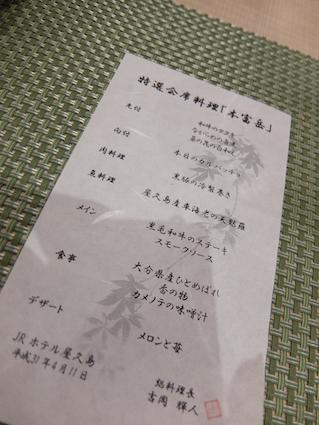 特選会席料理「本富岳」
先付 和牛のタタキ
ながらめの旨煮
菜の花の白和え
向付 本日のカルパッチョ
肉料理 黒豚の冷製巻き
魚料理 屋久島産本海老の天麩羅
メイン 黒毛和牛のステーキ
スモークソース
食事 大分県産ひとめぼれ
香の物
カメノテの味噌汁
デザート メロンと苺
JRホテル屋久島
平成31年4月11日
総料理長
吉岡 輝人